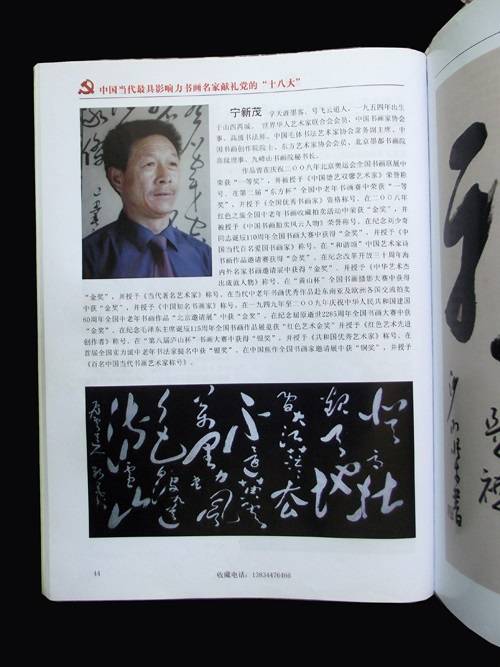 中国当代最具影响力书画名家献礼党的“十八大”
宁新茂 字天涯墨客，号飞云道人，一九五四年出生
于山西芮城。世界华人艺术家联合会会员，中国书画家协会理
事，高级书法师，中国毛体书法艺术家协会常务副主席，中
国书画创作院院士，东方艺术家协会会员，北京墨都书画院
高级理事，九嶷山书画院秘书长。
作品曾在庆祝二〇〇八年北京奥运会全国书画联展中
荣获“一等奖”，并被授予《中国德艺双馨艺术家》荣誉称
号。在第二届“东方杯”全国中老年书画赛中荣获“一等
奖”，并授予《全国优秀书画家》资格称号。在二〇〇八年
红色之旅全国中老年书画收藏拍卖活动中荣获“金奖”，并
被授予《中国书画拍卖风云人物》荣誉称号。在纪念刘少奇
同志诞辰110周年全国书画大赛中获得“金奖”，并授予《中
国当代百名爱国书画家》称号。在“和谐颂”中国艺术家诗
书画作品邀请赛获得“金奖”。在纪念改革开放三十周年海
内外名家书画邀请展中获得“金奖”，并授予《中华艺术杰
出成就人物》称号。在“黄山杯”全国书画摄影大赛中获得
“金奖”，并授予《当代著名艺术家》称号。在当代中老年书画优秀作品赴东南亚及欧洲各国交流拍卖
中获“金奖”，并授予《中国知名书画家》称号。在一九四九年至二〇〇九年庆祝中华人民共和国建国
60周年全国中老年书画作品“北京邀请展”中获“金奖”。在纪念屈原逝世2285周年全国书画大赛中获
“金奖”。在纪念毛泽东主席诞辰115周年全国书画作品展览获“红色艺术金奖”并授予《红色艺术先进
创作者》称号。在“第八届庐山杯”书画大赛中获得“银奖”，并授予《共和国优秀艺术家》称号。在
首届全国实力派中老年书法家提名中获“银奖”。在中国焦作全国书画家邀请展中获“铜奖”，并授予
《百名中国当代书画艺术家称号》。
登高壮
观天地
间大江茫茫去
不还黄云
万里动风
色白波九道
流雪山
44
收藏电话：13834476466